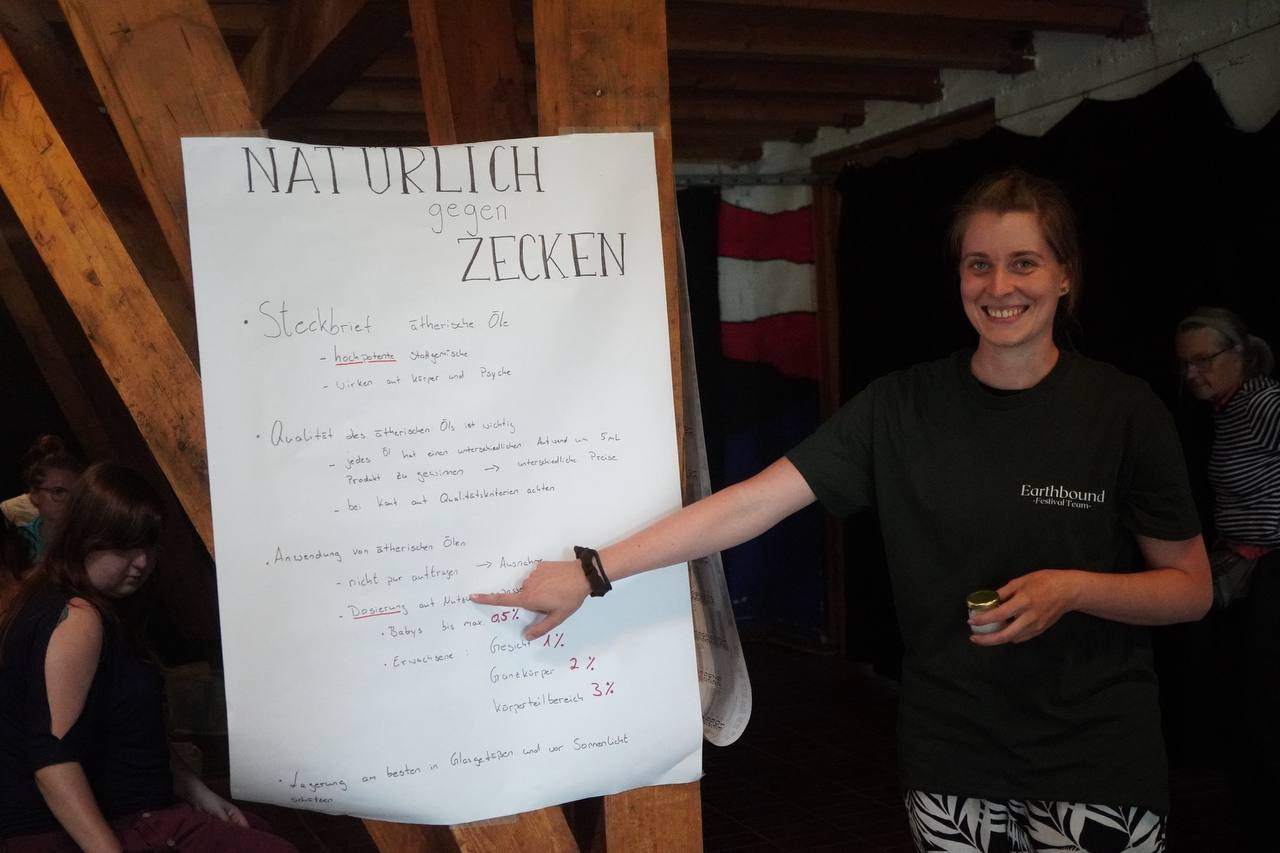 NATÜRLICH
gegen
ZECKEN
• Steckbrief ätherische Öle
- hochpotente Stoffgemische
- wirken auf Körper und Psyche
• Qualität des ätherischen Öls ist wichtig
- jedes Öl hat einen unterschiedlichen Aufwand um 5mL
Produkt zu gewinnen → unterschiedliche Preise
- bei Kauf auf Qualitätskriterien achten
• Anwendung von ätherischen Ölen
- nicht pur auftragen → Ausnahme
- Dosierung auf
• Babys bis max. 0,5%
• Erwachsene : Gesicht 1%
Ganzkörper 2%
Körperteilbereich 3%
• Lagerung am besten in Glasgefäßen und vor Sonnenlicht
schützen
Earthbound
-Festival Team-